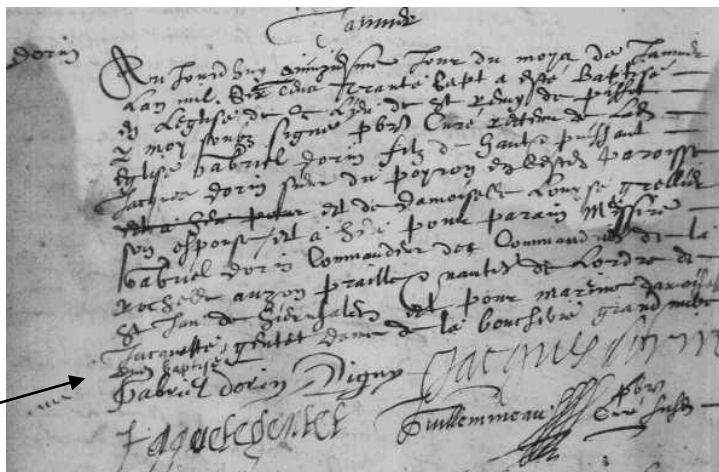 Janvier
dorin
Au jourd huy cinquiesme Jour du moys de Janvier
Lan mil six cens trante sept a esté Baptisé
en Leglise de de St Remy de
p moy soubz signé pbre Curé de Lad
eglise Gabriel dorin filz de hault & puissant
Jacques dorin sieur du poyron en ceste paroisse
et de damoiselle Louyse
son espouse et a pour parain Messire
Gabriel dorin Commandeur des Commanderies de la
Rochelle auzon praille nantes de Lordre de
St Jan de Jierusalem et pour marine damoiselle
Jacquette gentet dame de la bouchivre grand mere
dud baptisé
Gabriel dorin Jacques dorin
Jaquete gentet Guillemineau pbre